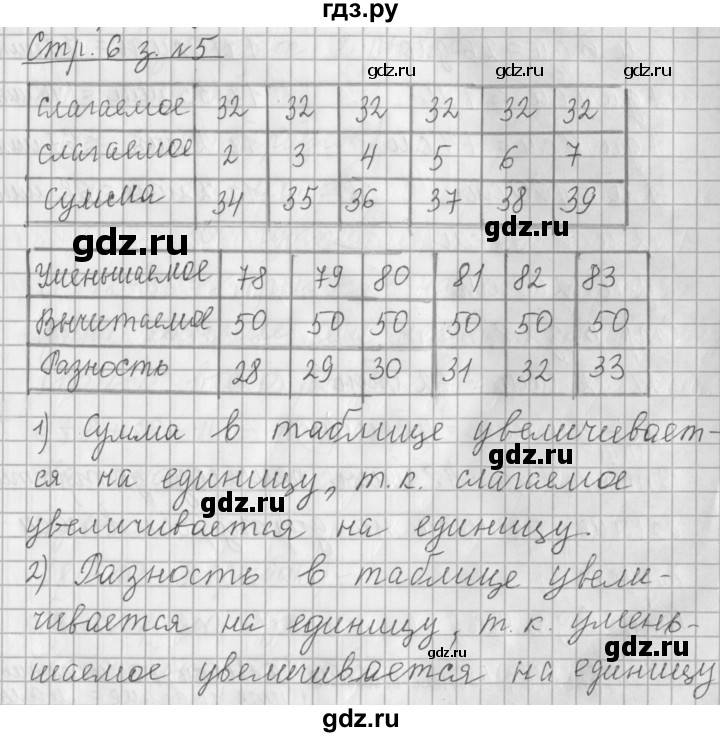 гдз.ру
Стр. 6 з. №5
gdz.ru gdz.ru
Слагаемое 32 32 32 32 32 32
слагаемое 2 3 4 5 6 7
Сумма 34 35 36 37 38 39
gdz.ru
gdz.ru
Уменьшаемое 78 79 80 81 82 83
Вычитаемое 50 50 50 50 50 50
Разность 28 29 30 31 32 33
1) Сумма в таблице увеличивает-
ся на единицу, т.к. слагаемое
gdz.ru gdz.ru
увеличивается на единицу.
2) Разность в таблице увели-
чивается на единицу, т.к. умень-
gdz.ru gdz.ru
шаемое увеличивается на единицу
gdz.ru